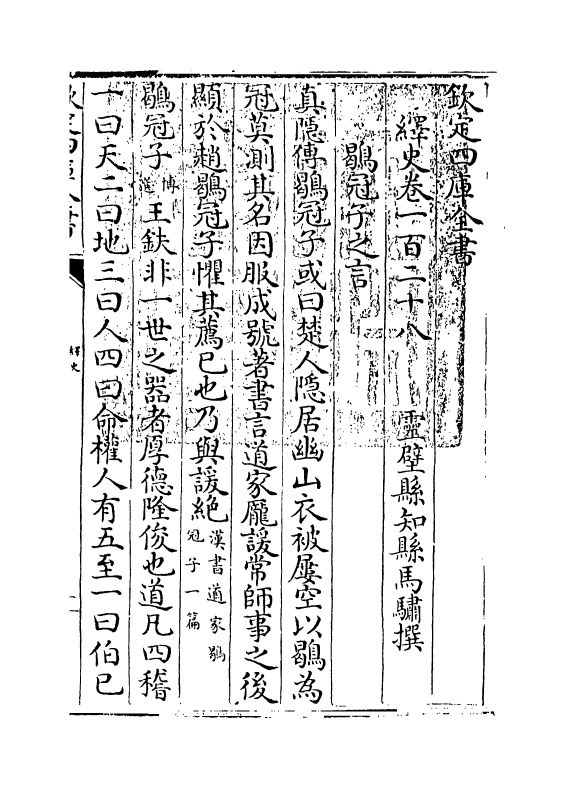 欽定四庫全書
繹史卷一百二十八　靈壁縣知縣馬驌撰
鶡冠子之言
真隱傳鶡冠子或曰楚人隱居幽山衣被屢空以鶡為
冠莫測其名因服成號著書言道家龐諼常師事之後
顯於趙鶡冠子懼其薦已也乃與諼絶漢書道家鶡冠子一篇
鶡冠子博選王鈇非一世之器者厚德隆俊也道凡四稽
一曰天二曰地三曰人四曰命權人有五至一曰伯已
欽定四庫全書
繹史